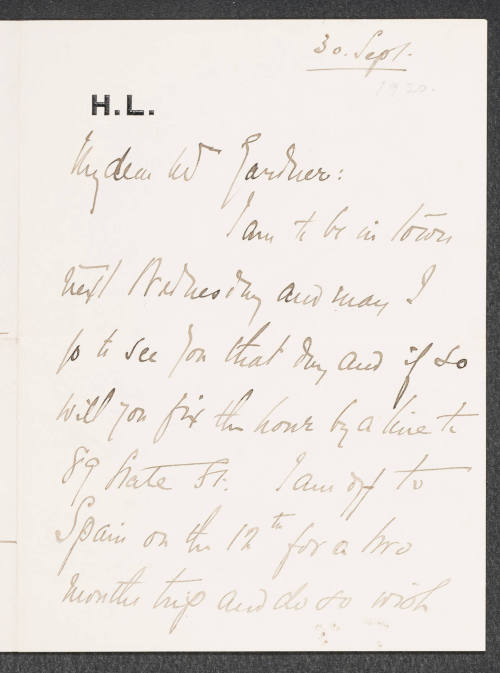 30. Sept.
1920.
H.L.
My dear Mrs Gardner:
I am to be in town
next Wednesday and may I
go to see you that day and if so
will you fix the hour by a line to
89 State St. I am off to
Spain on the 12th for a two
months trip and do so wish